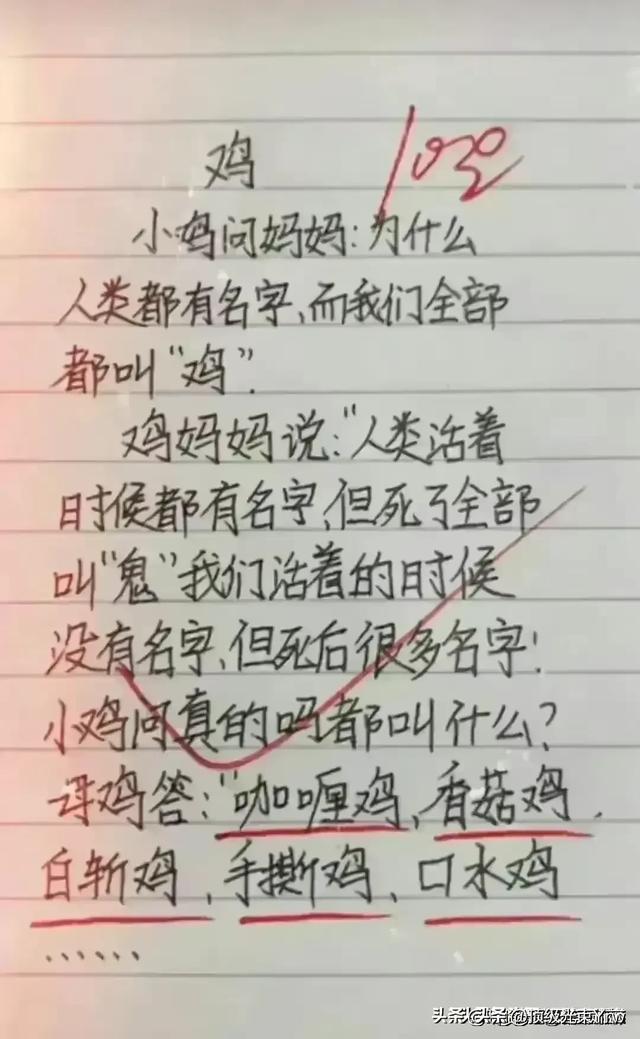 鸡
100
小鸡问妈妈:为什么
人类都有名字、而我们全部
都叫“鸡”.
鸡妈妈说:“人类活着
时候都有名字、但死了全部
叫“鬼”我们活着的时候
没有名字、但死后很多名字!
小鸡问真的吗都叫什么?
母鸡答:“咖喱鸡、香菇鸡、
白斩鸡、手撕鸡、口水鸡
......